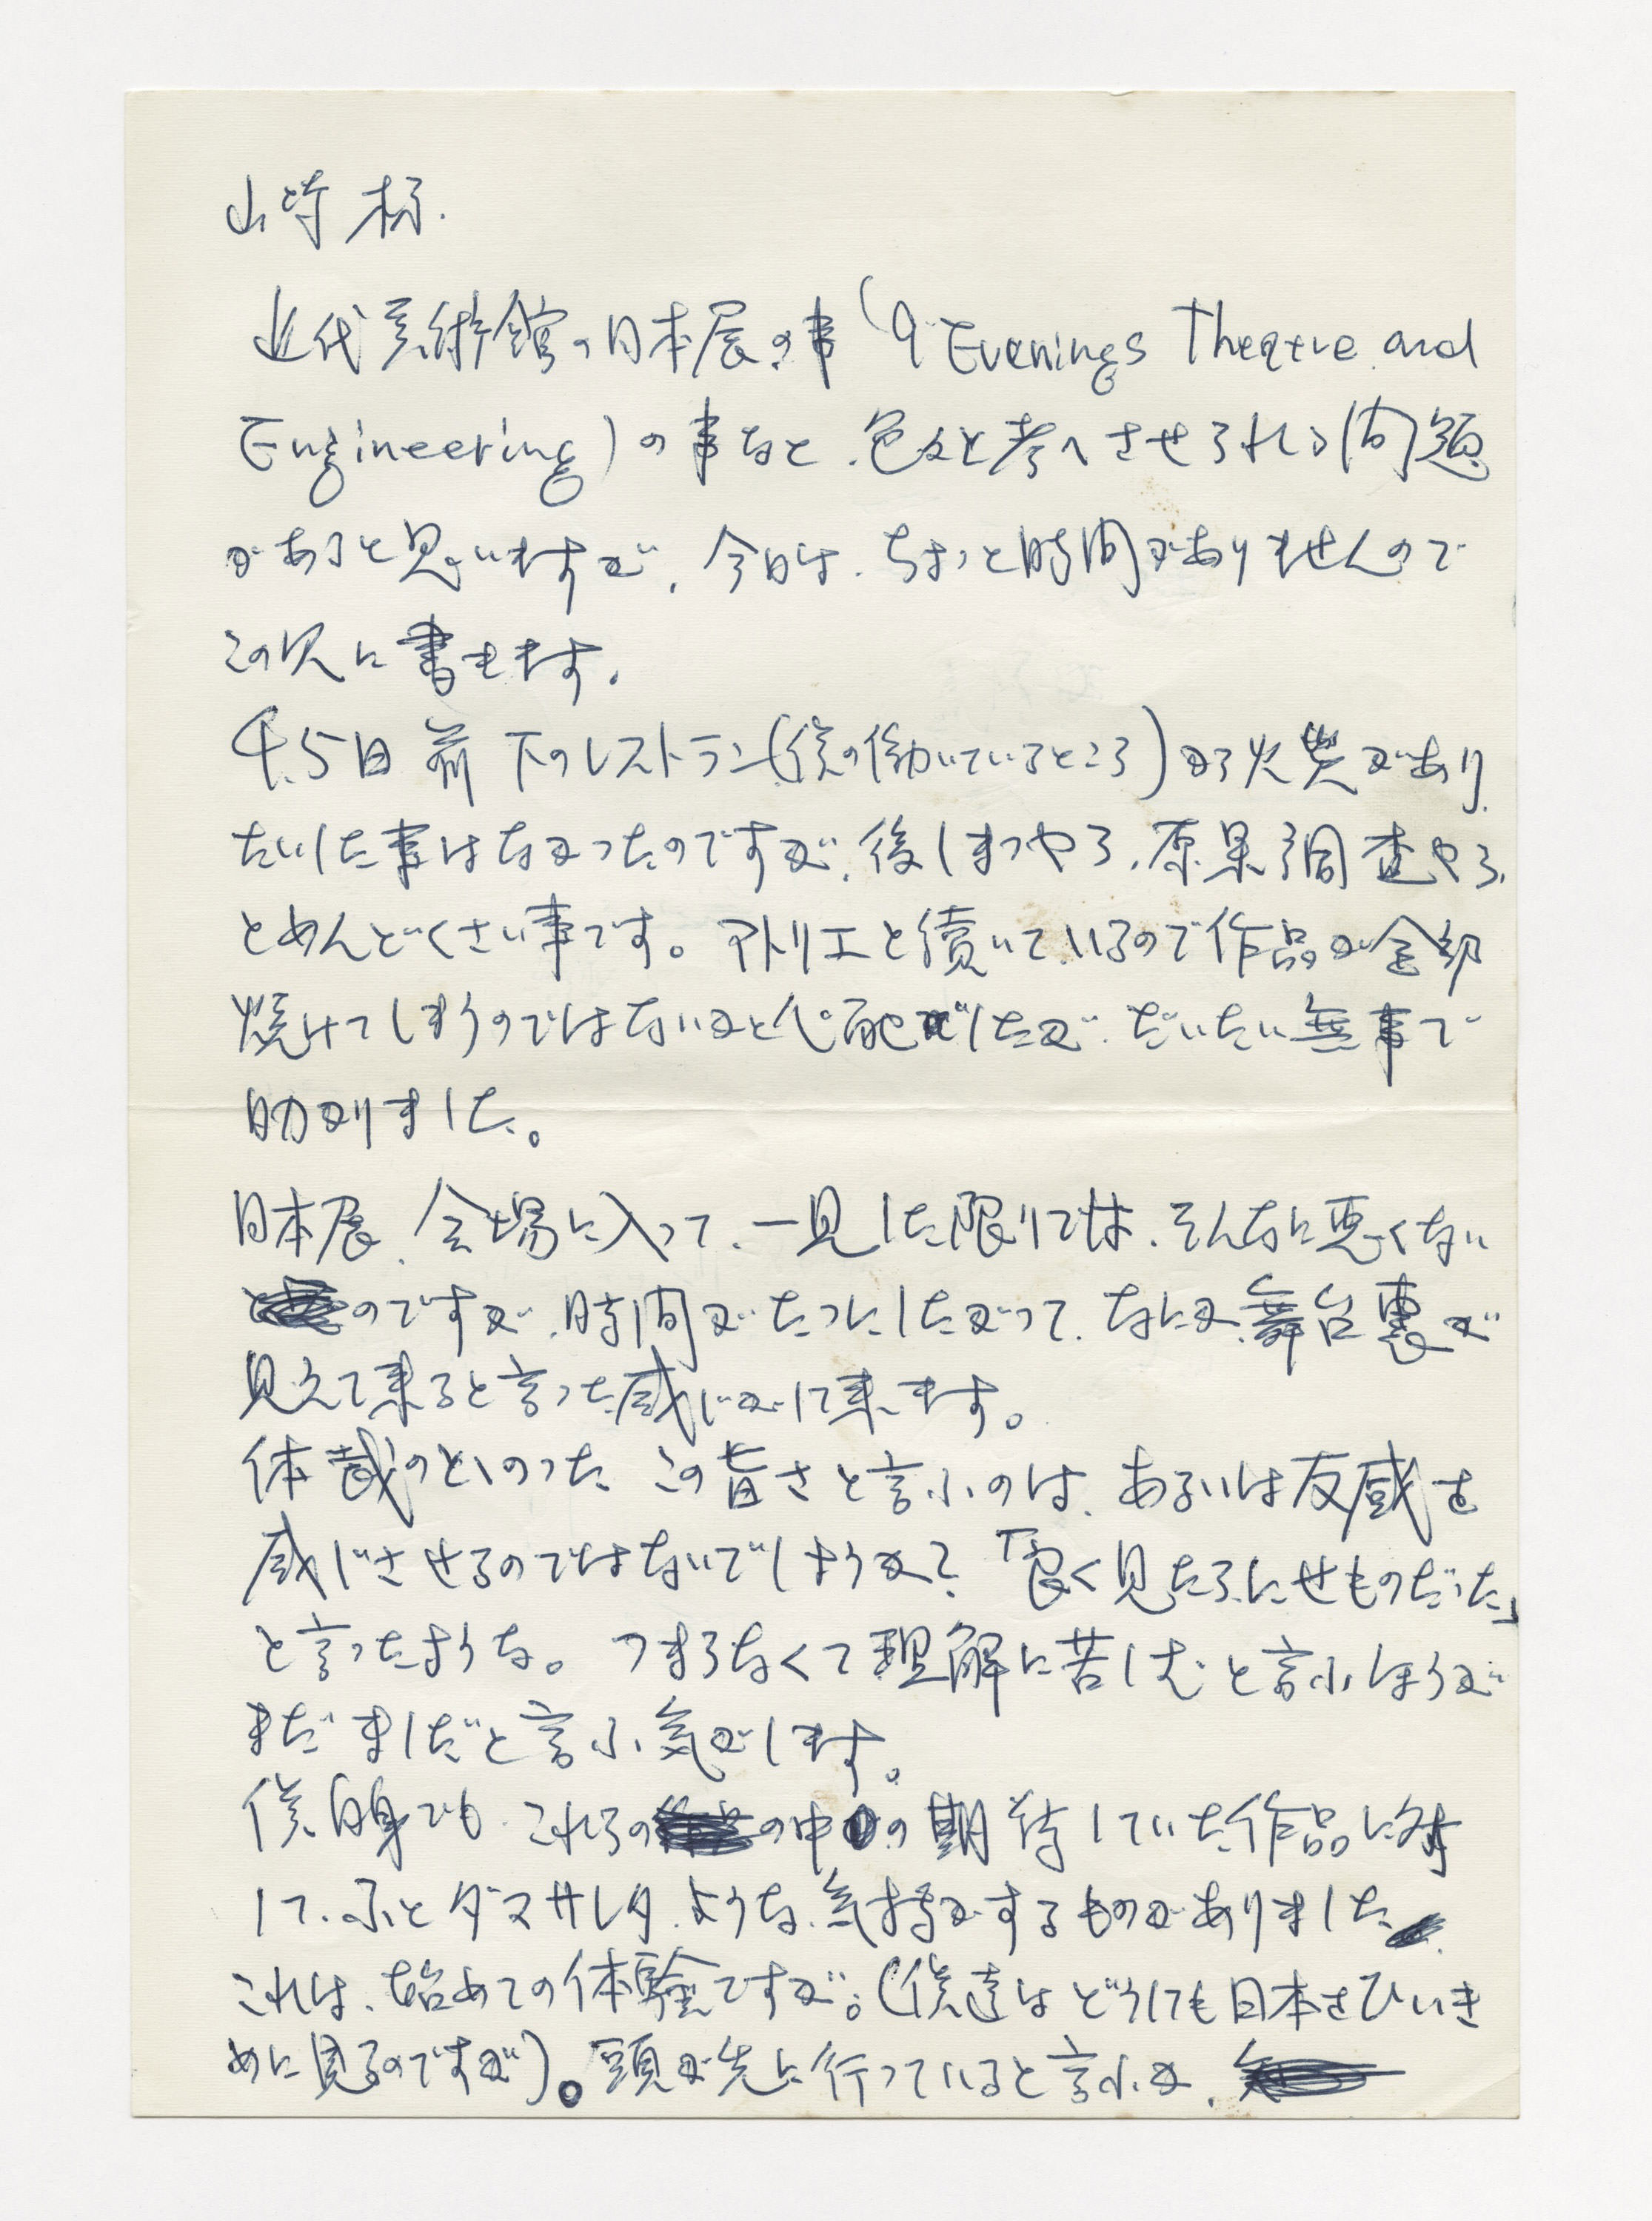 山崎様.
近代美術館の日本展の事(9 Evenings Theatre and
Engineering)の事など、色々と考へさせられる問題
があると思いますが、今日は、ちょっと時間がありませんので
この次に書きます。
4.5日前 下のレストラン(僕の働いているところ)から火災があり、
たいした事はなかったのですが、後しまつやら、原果調査やら、
とめんどくさい事です。アトリエと続いているので作品が全部
焼けてしまうのではないかと心配でしたが、だいたい無事で
助かりました。
日本展、会場に入って、一見した限りでは、そんなに悪くない
のですが、時間がたつにしたがって、なにか、舞台裏が
見えて来ると言った感じがして来ます。
体裁のとゝのった この旨さと言ふのは、あるいは反感を
感じさせるのではないでしょうか?「良く見たらにせものだった」
と言ったような。つまらなくて理解に苦しむと言ふほうが
まだましだと言ふ気がします。
僕自身でも、これらの の中の期待していた作品に対
して、ふとダマサレタような、気持がするものがありました
これは、始めての体験ですが。(僕達はどうしても日本をひいき
めに見るのですが)。頭が先に行っていると言ふか、